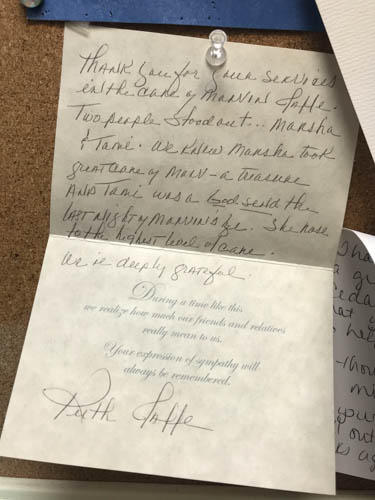 Thank you for your services
in the care of Marvin Jaffe.
Two people stood out... Marsha
& Tami. We knew Marsha took
great care of Marv - a treasure
And Tami was a God send the
last night of Marvin's life. She rose
to the highest level of care.
We're deeply grateful.
During a time like this
we realize how much our friends and relatives
really mean to us.
Your expression of sympathy will
always be remembered.
Ruth Jaffe